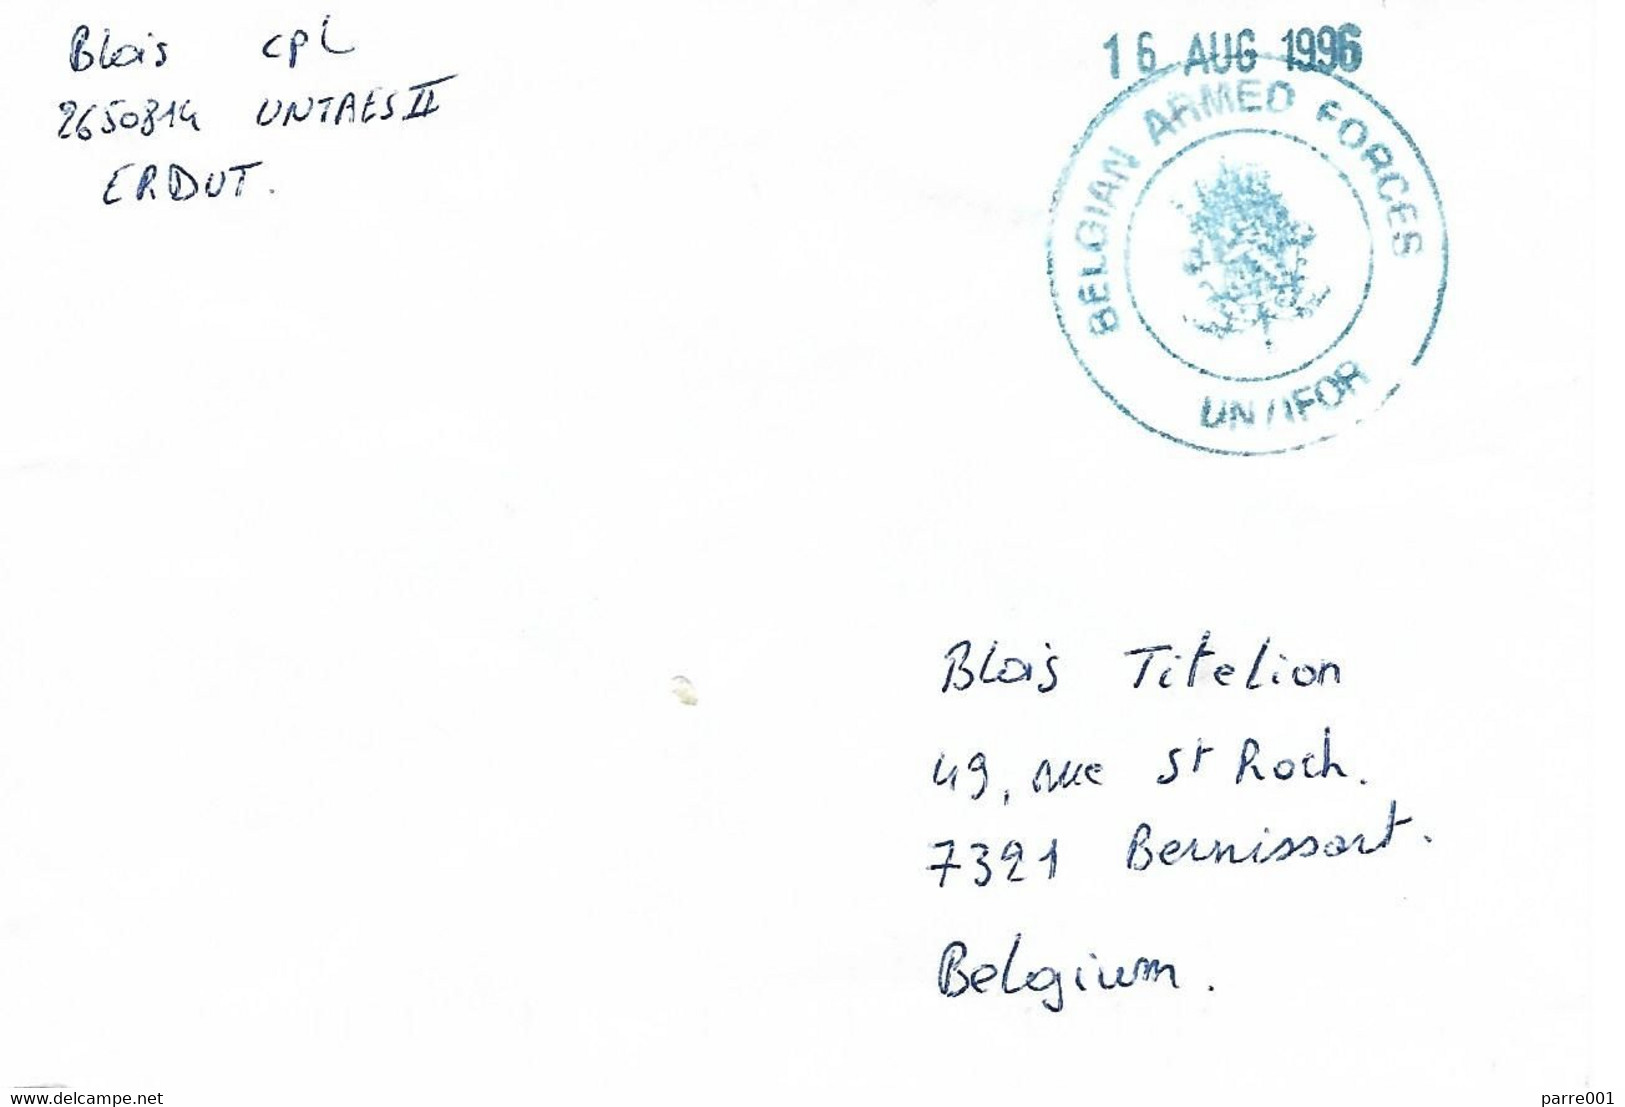 Blais CPL
2650814 UNTAES II
ERDUT.
16 AUG 1996
BELGIAN ARMED FORCES
UN/IFOR
Blais Titelion
49, rue St Roch.
7321 Bernissart.
Belgium.
www.delcampe.net
parre001